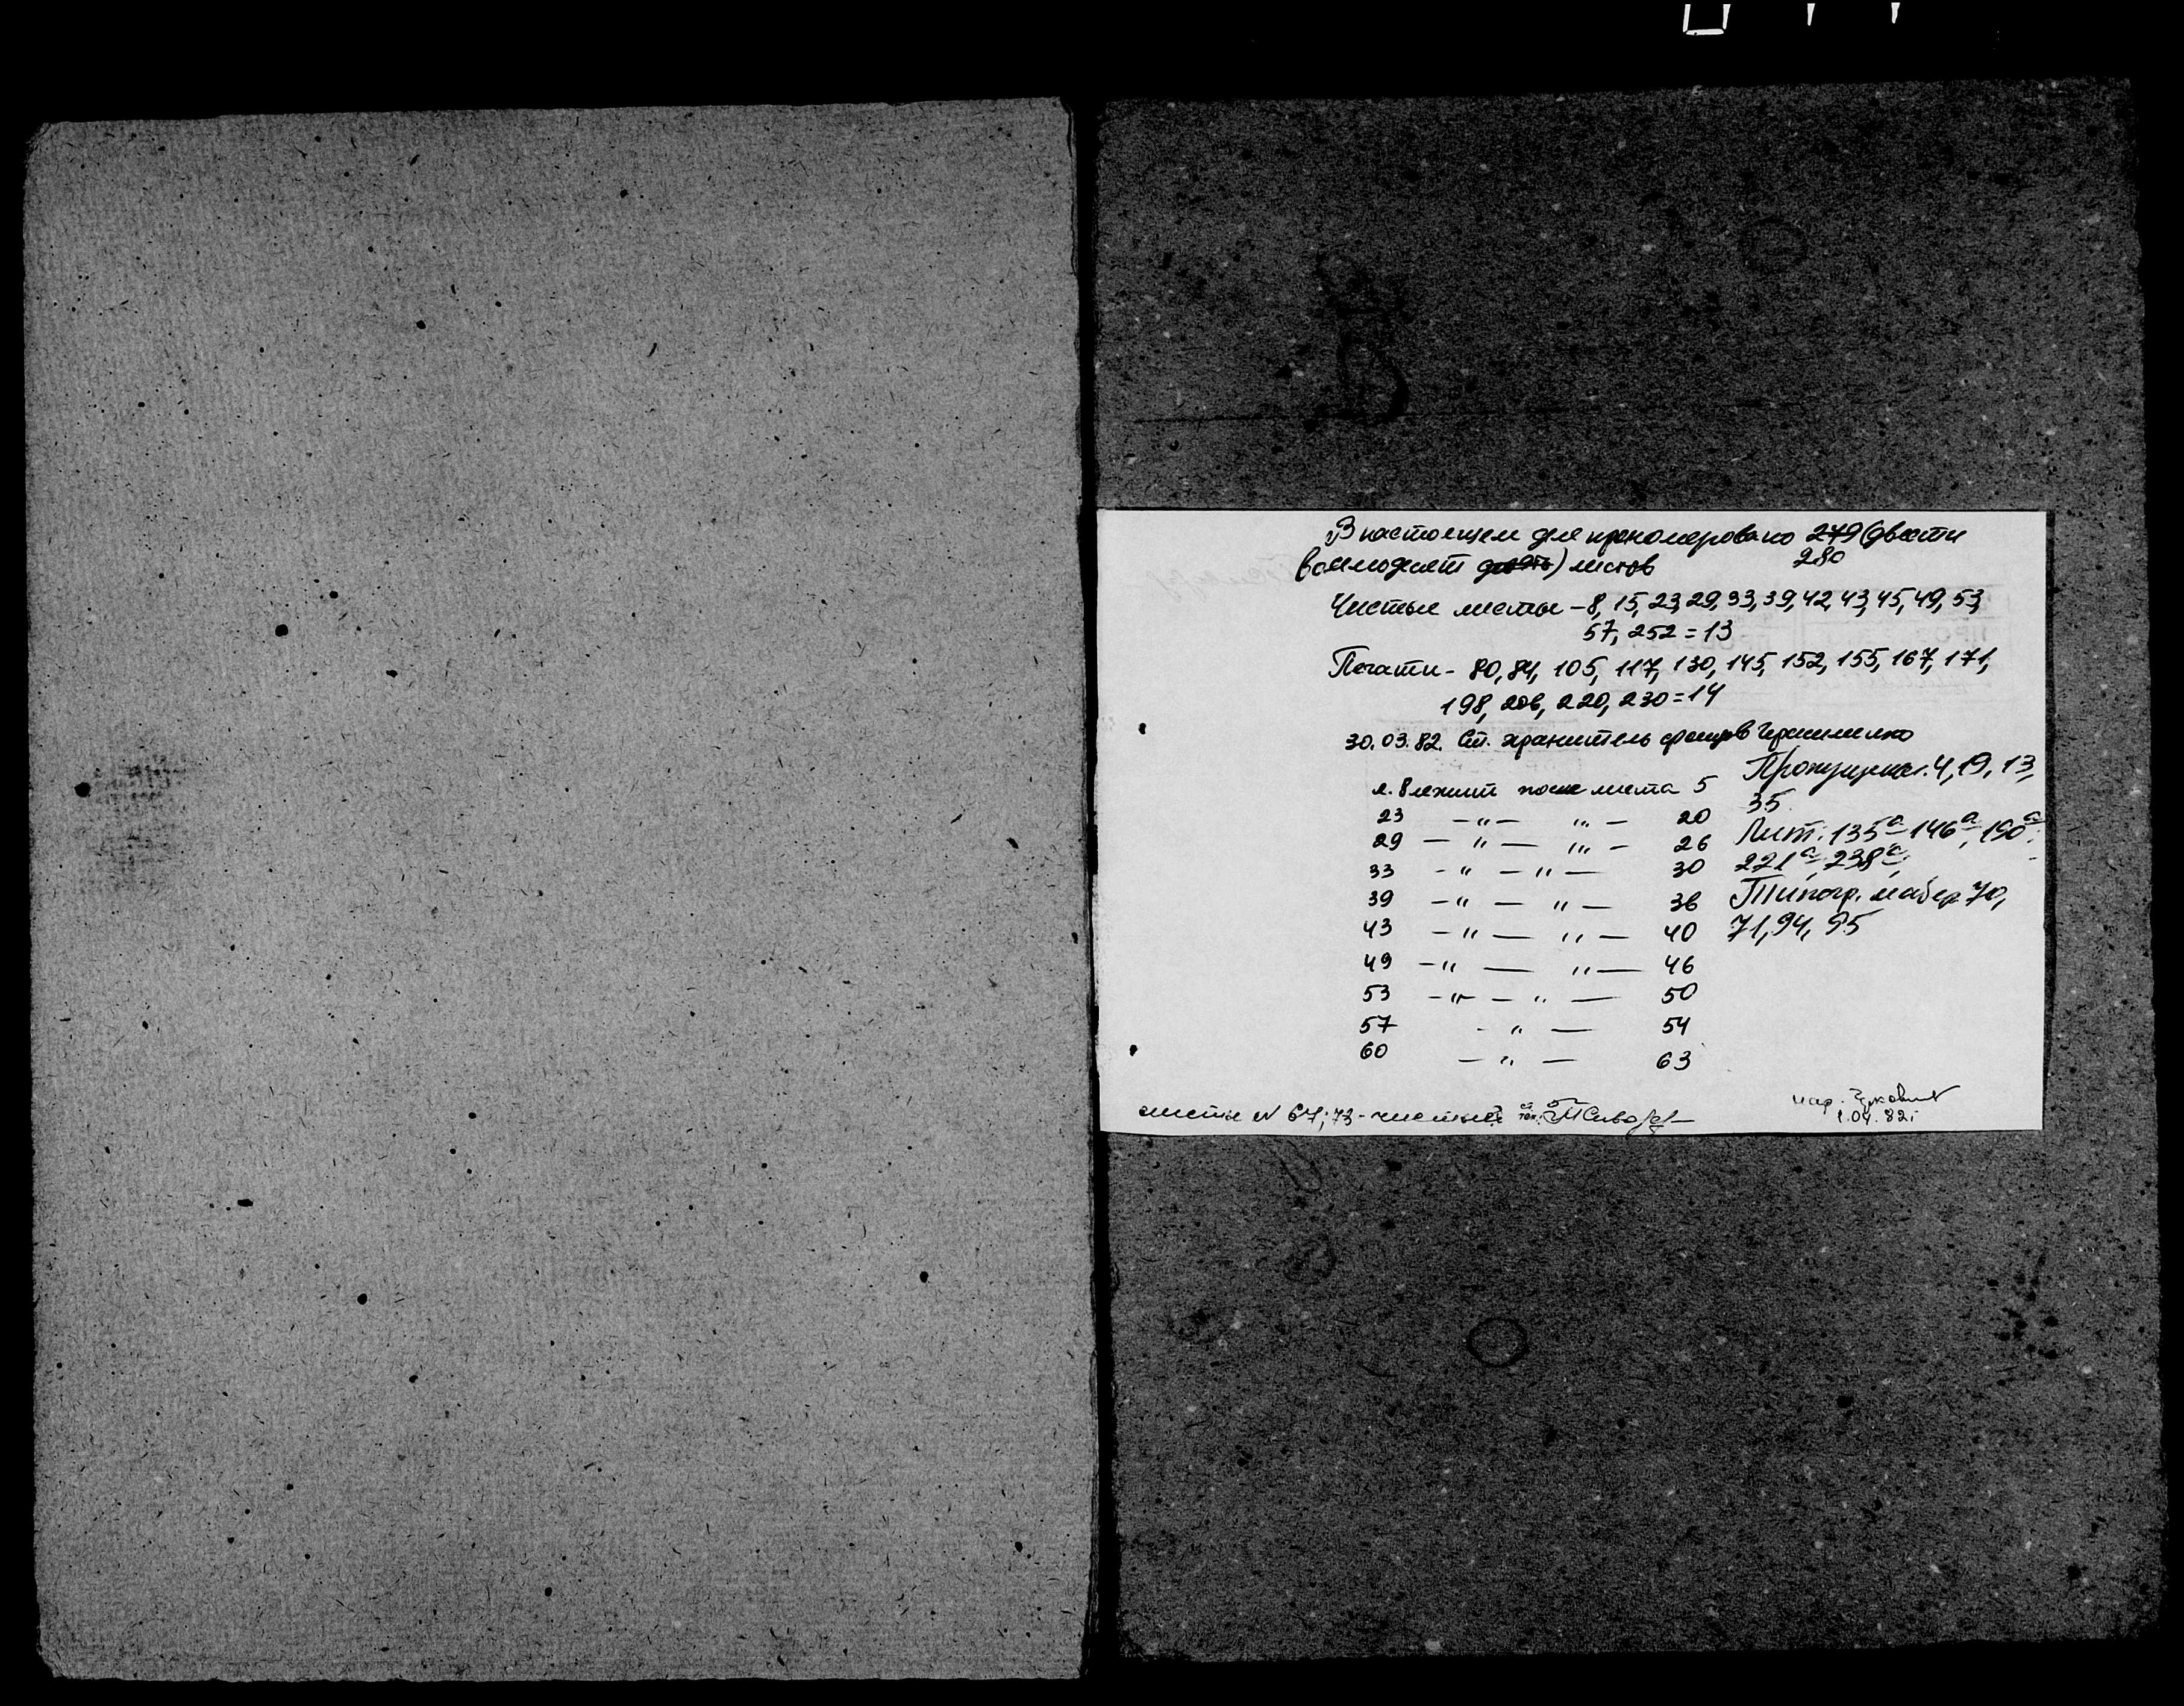 В настоящем деле прономеровано 279 (двести
280
восемьдесят девять) листов
Чистые листы – 8, 15, 23, 29, 33, 39, 42, 43, 45, 49, 53,
57, 252 = 13
Печати – 80, 84, 105, 117, 130, 145, 152, 155, 167, 171,
198, 206, 220, 230 = 14
30.03.82. Ст. хранитель фондов
л. 8 лежит после листа 5
23 –"– "– 20
29 –"– "– 26
33 –"–"– 30
39 –"–"– 36
43 –"–"– 40
49 –"–"– 46
53 –"–"– 50
57 –"– 54
60 –"– 63
Пропущена л. 4, 19, 13,
35
Лит. 135а, 146а, 190а,
221а, 238а,
Типогр. набор 70,
71, 94, 95
листы N 67; 73 – чистые
1.04.82г